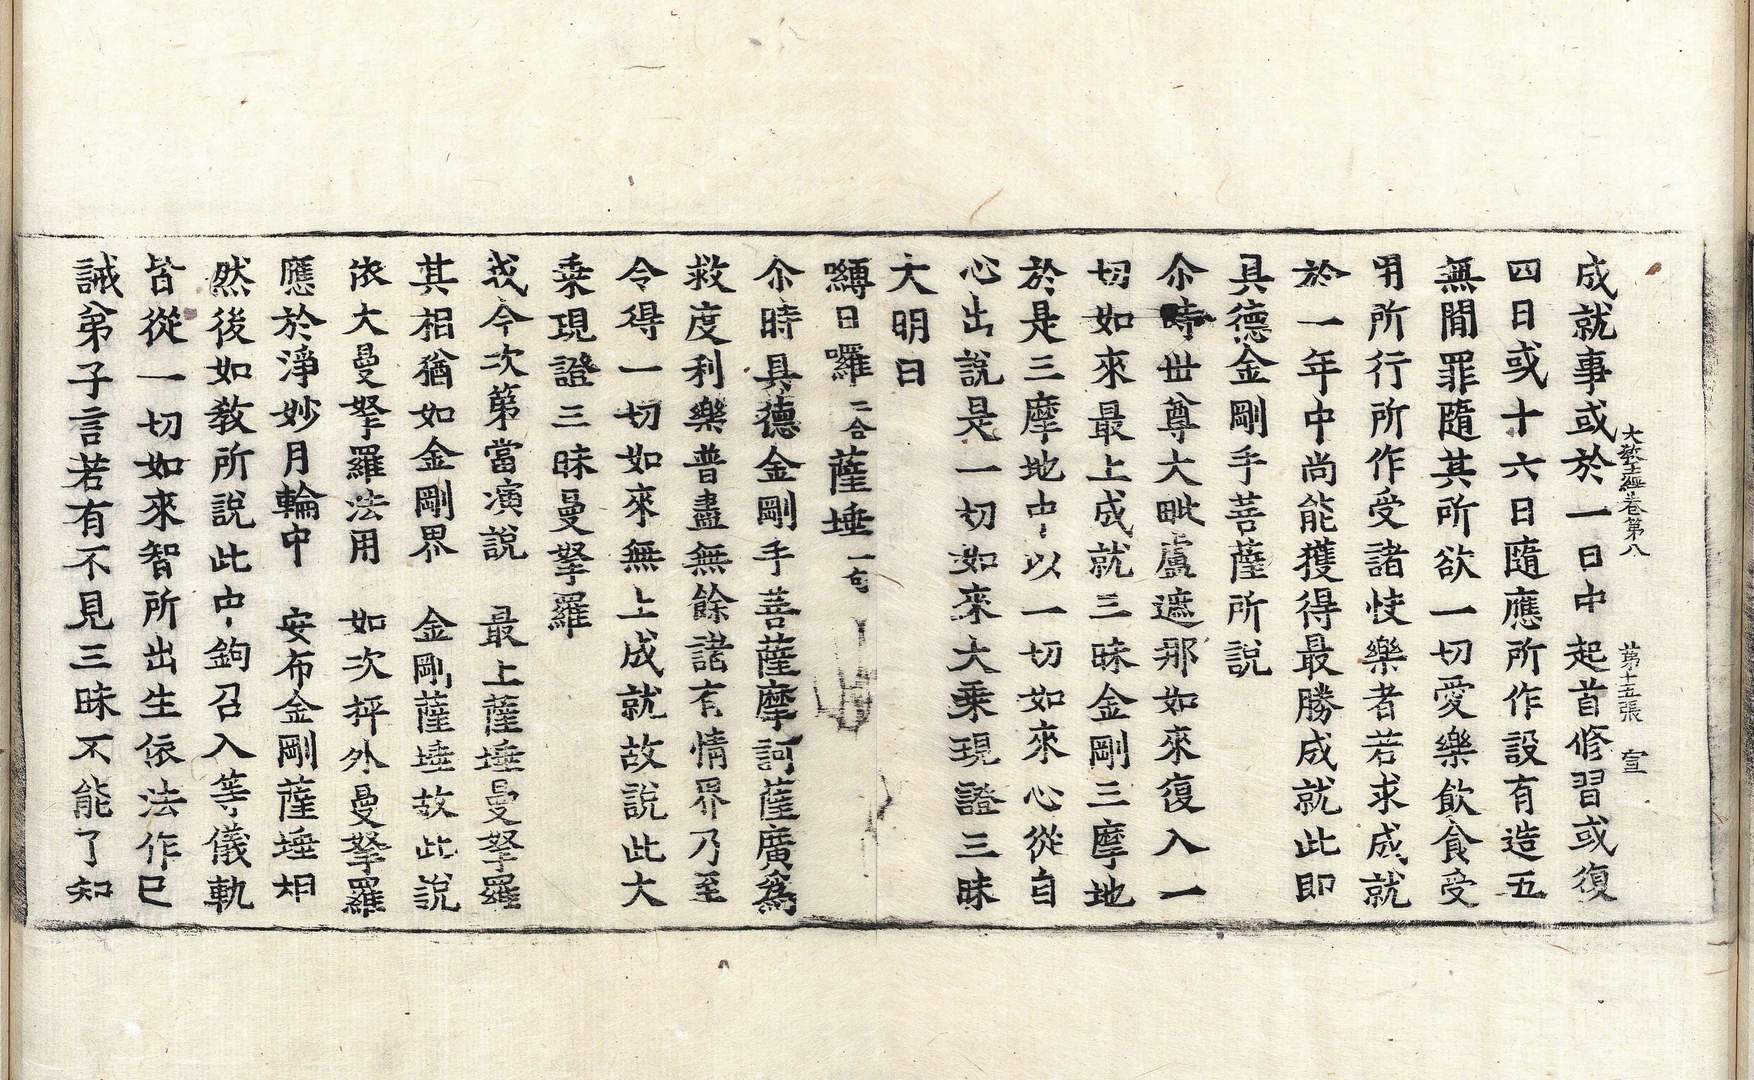 大教王經卷第八　第十五張　宣
成就事或於一日中起首修習或復
四日或十六日隨應所作設有造五
無間罪隨其所欲一切愛樂飲食受
用所行所作受諸快樂者若求成就
於一年中尚能獲得最勝成就此即
具德金剛手菩薩所說
尒時世尊大毗盧遮那如來復入一
切如來最上成就三昧金剛三摩地
於是三摩地中以一切如來心從自
心出說是一切如來大乗現證三昧
大明曰
嚩日囉二合薩埵一句
尒時具德金剛手菩薩摩訶薩廣爲
救度利樂普盡無餘諸有情界乃至
令得一切如來無上成就故說此大
乗現證三昧曼拏羅
我今次第當演說　最上薩埵曼拏羅
其相猶如金剛界　金剛薩埵故此說
依大曼拏羅法用　如次抨外曼拏羅
應於淨妙月輪中　安布金剛薩埵相
然後如教所說此中鉤召入等儀軌
皆從一切如來智所出生依法作已
誡弟子言若有不見三昧不能了知